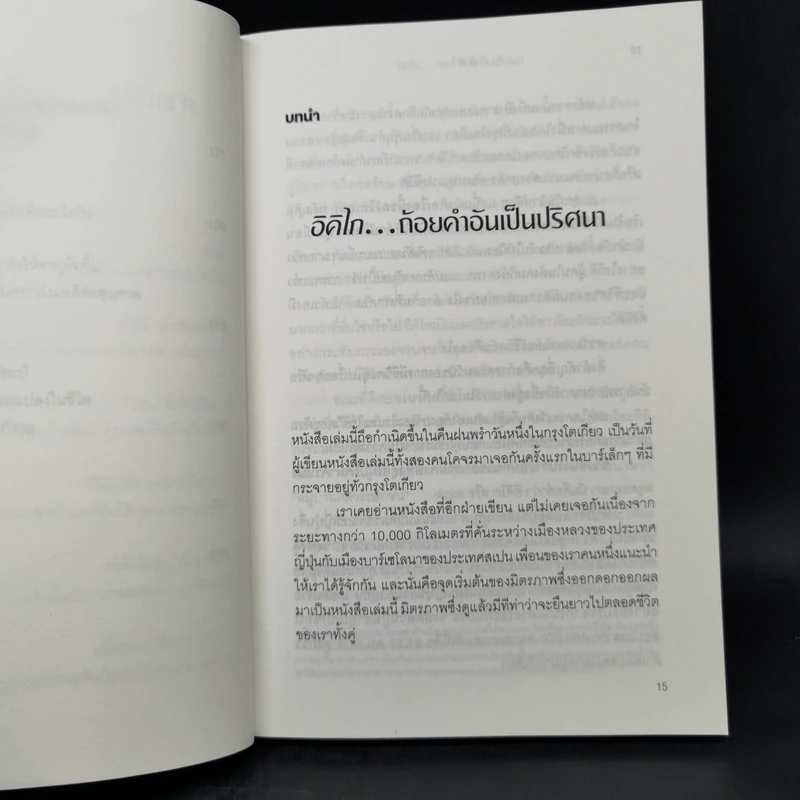 บทนำ
อิคิไก...ถ้อยคำอันเป็นปริศนา
หนังสือเล่มนี้ถือกำเนิดขึ้นในคืนฝนพรำวันหนึ่งในกรุงโตเกียว เป็นวันที่
ผู้เขียนหนังสือเล่มนี้ทั้งสองคนโคจรมาเจอกันครั้งแรกในบาร์เล็กๆ ที่มี
กระจายอยู่ทั่วกรุงโตเกียว
เราเคยอ่านหนังสือที่อีกฝ่ายเขียน แต่ไม่เคยเจอกันเนื่องจาก
ระยะทางกว่า 10,000 กิโลเมตรที่คั่นระหว่างเมืองหลวงของประเทศ
ญี่ปุ่นกับเมืองบาร์เซโลนาของประเทศสเปน เพื่อนของเราคนหนึ่งแนะนำ
ให้เราได้รู้จักกัน และนั่นคือจุดเริ่มต้นของมิตรภาพซึ่งออกดอกออกผล
มาเป็นหนังสือเล่มนี้ มิตรภาพซึ่งดูแล้วมีทีท่าว่าจะยืนยาวไปตลอดชีวิต
ของเราทั้งคู่
15